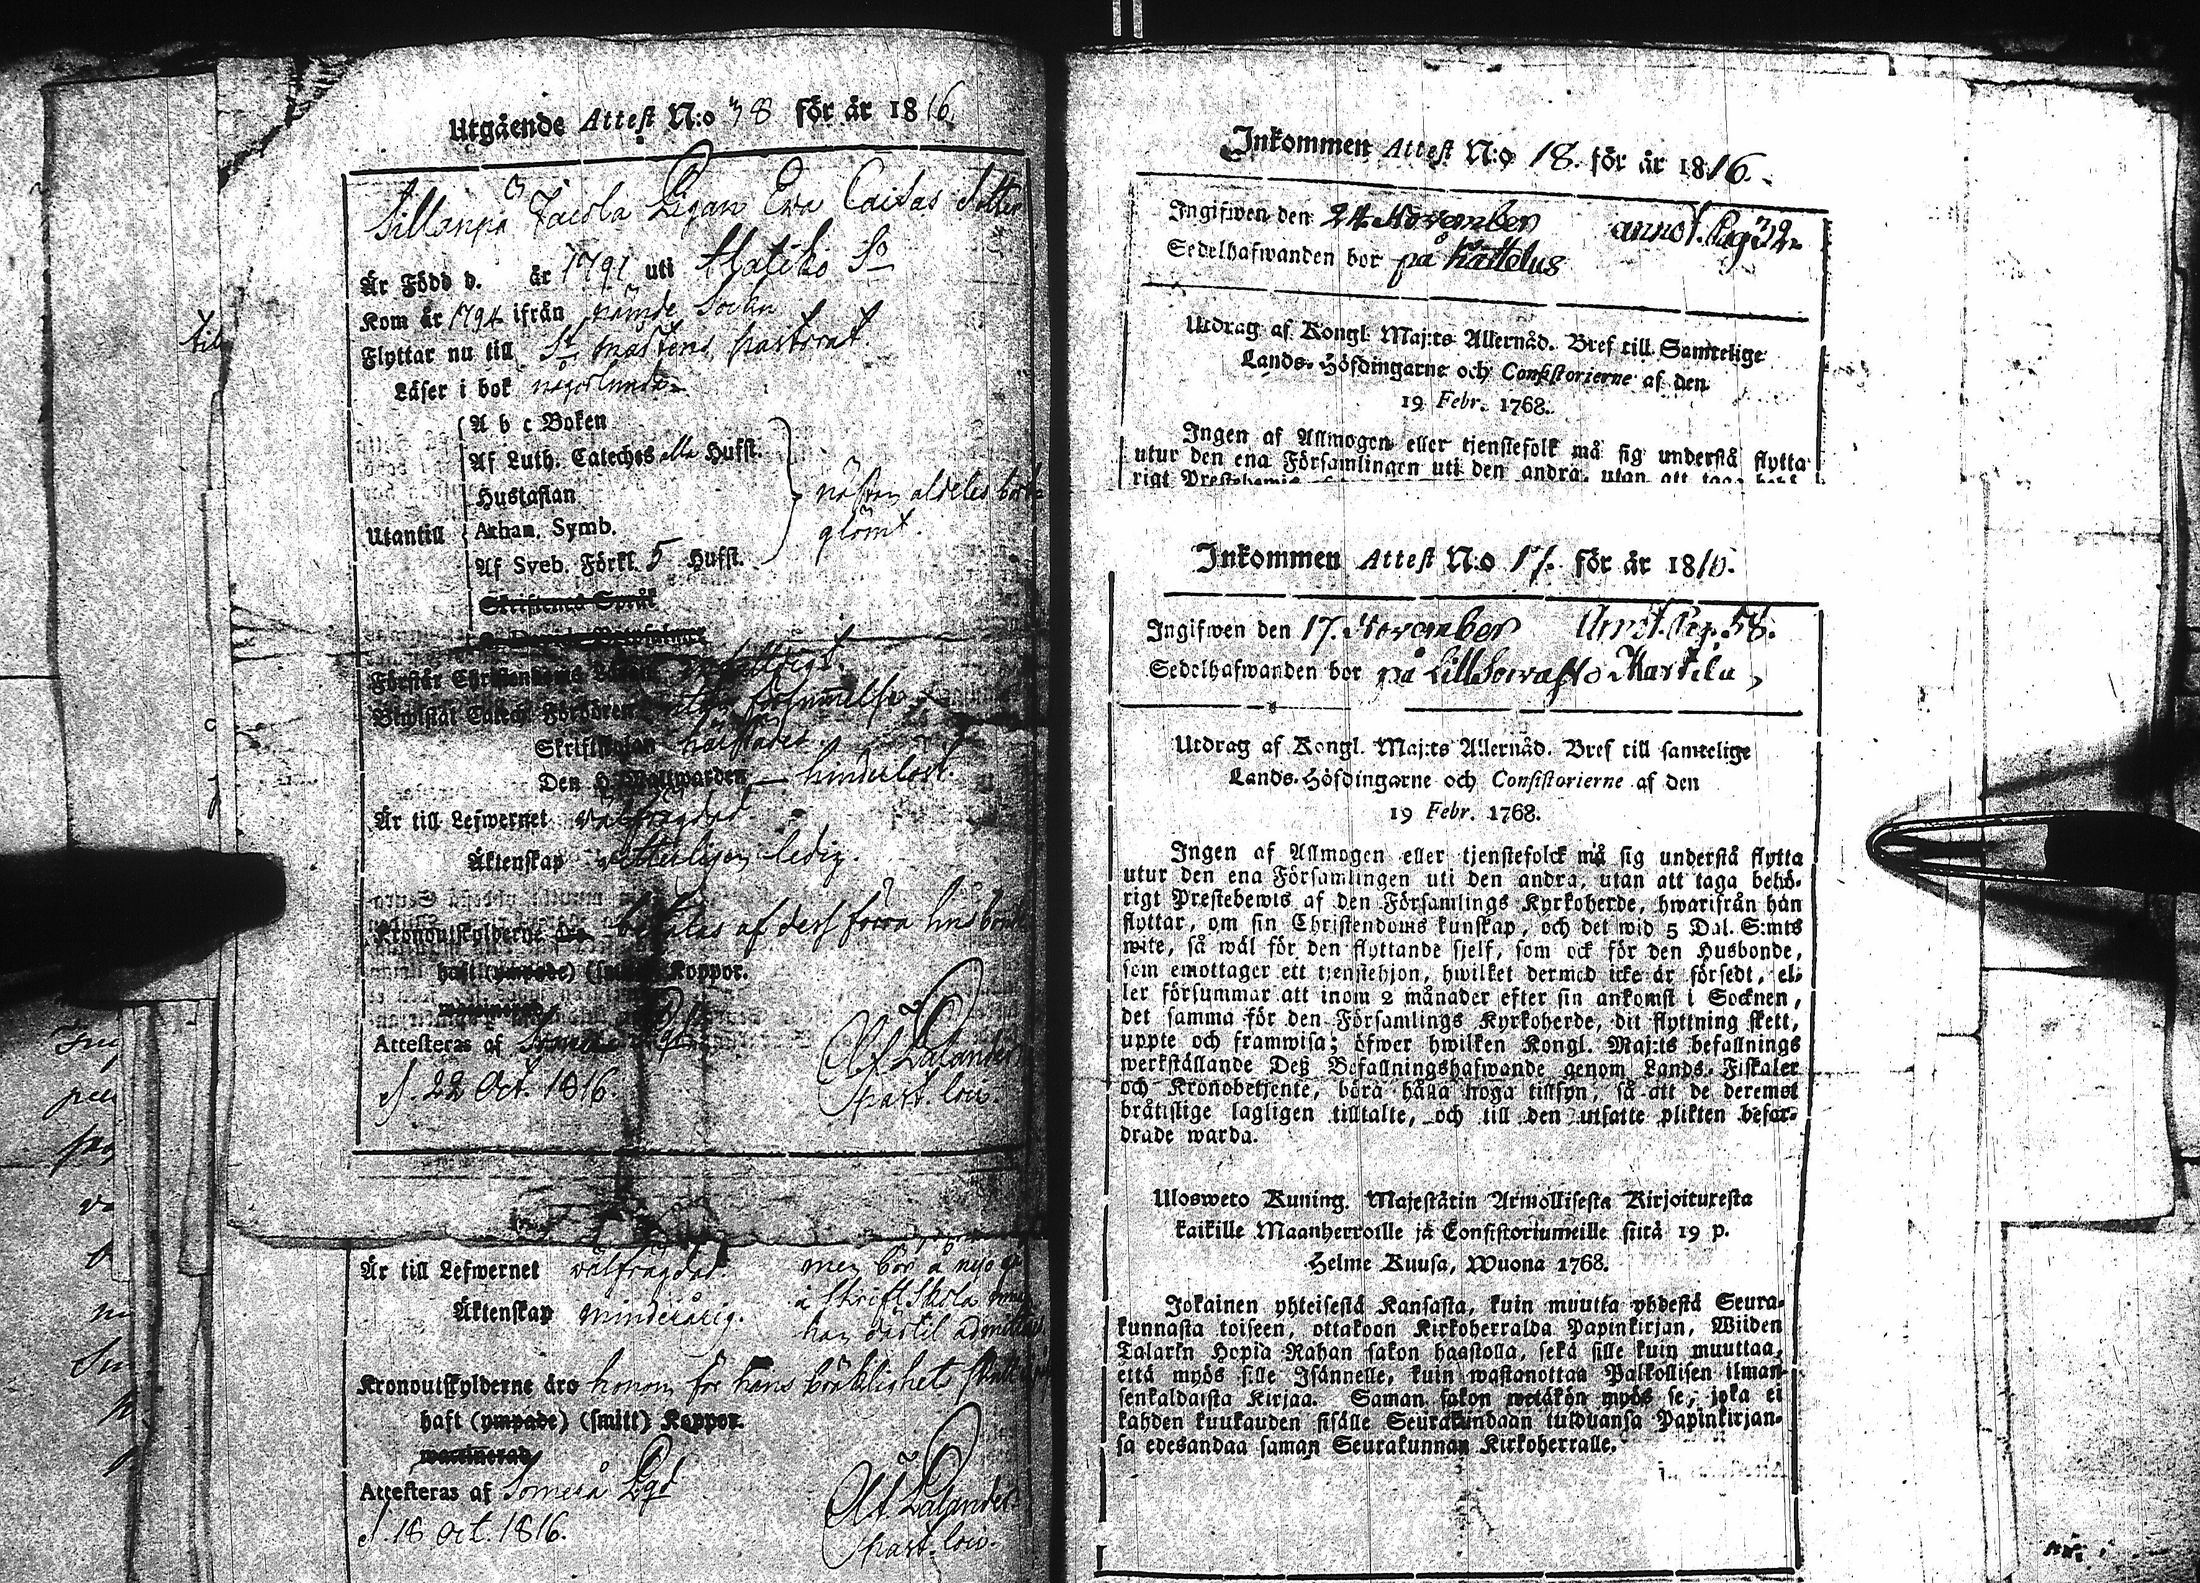 Utgående Attest N:o 38 för år 1816.
Sillanpä Jacola Pigan Eva Caisas dotter
Är Född d. år 1791 uti Hatiko Sn
Kom år 1794 ifrån nämde Sockn
Flyttar nu till St Mårtens pastorat.
Läser i bok någorlunda
A b c Boken
Af Luth. Cateches alla Hufst.
Hustaflan
Utantill Athan. Symb.
Af Sveb. Förkl. 5 Hufst.
nästan aldeles bort
glömt.
Skriftenes Språk
Förstår Christendoms Läran enfaldigt.
Bewistat Catech. Förhören utan försummelse
Skriftskolan
Den H. Nattwarden hinderlöst.
Är till Lefwernet välfrägdad
Äktenskap vetterligen ledig.
Kronoutskylderne betalas af dess förra husbonde
haft (ympade) Koppor.
Attesteras af Somero Pgd
d. 22 Oct. 1816.
Past. loci.
Är till Lefwernet välfrägdad.
men bör å nyo gå
i Skrift Skola innan
han dertil admitteras
Äktenskap minderårig.
Kronoutskylderne äro honom för hans bräcklighet
haft (ympade) (smitt) Koppor.
waccinerad
Attesteras af Somero Pgd
d. 18 Oct. 1816.
Past. loci.
Inkommen Attest N:o 18. för år 1816.
Ingifwen den 24 November annot. Pag. 32
Sedelhafwanden bor på Kattelus
Utdrag af Kongl. Maj:ts Allernåd. Bref till Samtelige
Lands-Höfdingarne och Consistorierne af den
19 Febr. 1768.
Ingen af Allmogen eller tjenstefolk må sig understå flytta
utur den ena Församlingen uti den andra, utan att taga behö-
rigt Prestebewis
Inkommen Attest N:o 17. för år 1816.
Ingifwen den 17. November Annot. Pag. 58.
Sedelhafwanden bor på Lill Sorvasto Martila,
Utdrag af Kongl. Maj:ts Allernåd. Bref till samtelige
Lands-Höfdingarne och Consistorierne af den
19 Febr. 1768.
Ingen af Allmogen eller tjenstefolck må sig understå flytta
utur den ena Församlingen uti den andra, utan att taga behö-
rigt Prestebewis af den Församlings Kyrkoherde, hwarifrån han
flyttar, om sin Christendoms kunskap, och det wid 5 Dal. S:mts
wite, så wäl för den flyttande sjelf, som ock för den Husbonde,
som emottager ett tjenstehjon, hwilket dermed icke är försedt, el-
ler försummar att inom 2 månader efter sin ankomst i Socknen,
det samma för den Församlings Kyrkoherde, dit flyttning skett,
uppte och framwisa; öfwer hwilken Kongl. Maj:ts befallnings
werkställande Deß Befallningshafwande genom Lands-Fiskaler
och Kronobetjente, böra hålla noga tillsyn, så att de deremot
bråtislige lagligen tilltalte, och till den utsatte plikten befor-
drade warda.
Ulosweto Kuning. Majestätin Armollisesta Kirjoituresta
kaikille Maanherroille ja Consistoriumeille siitä 19 p.
Helme Kuusa, Wuona 1768.
Jokainen yhteisestä Kansasta, kuin muutta yhdestä Seura-
kunnasta toiseen, ottakoon Kirkoherralda Papinkirjan, Wiiden
Talarin Hopia Rahan sakon haastolla, sekä sille kuin muuttaa,
että myös sille Isännelle, kuin wastanottaa Palkollisen ilman
senkaldaista Kirjaa. Saman sakon wetäkön myös se, joka ei
kahden kuukauden sisälle Seurakundaan tulduansa Papinkirjan-
sa edesandaa saman Seurakunnan Kirkoherralle.